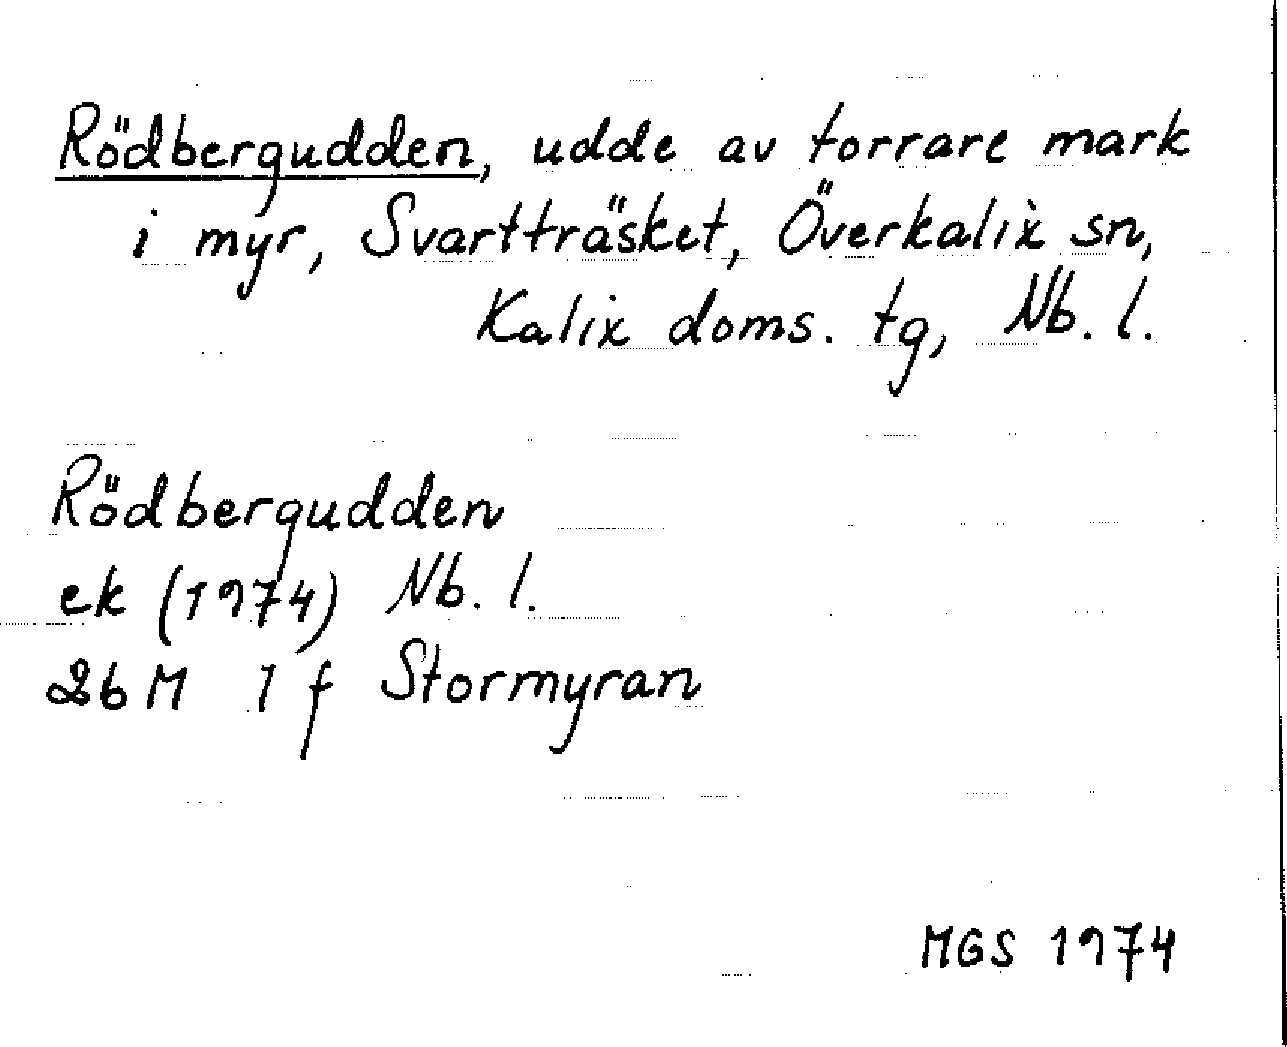 Rödbergudden, udde av torrare mark
i myr, Svartträsket, Överkalix sn,
Kalix doms. tg, Nb. l.
Rödbergudden
ek (1974) Nb. l.
26 M 1 f Stormyran
MGS 1974